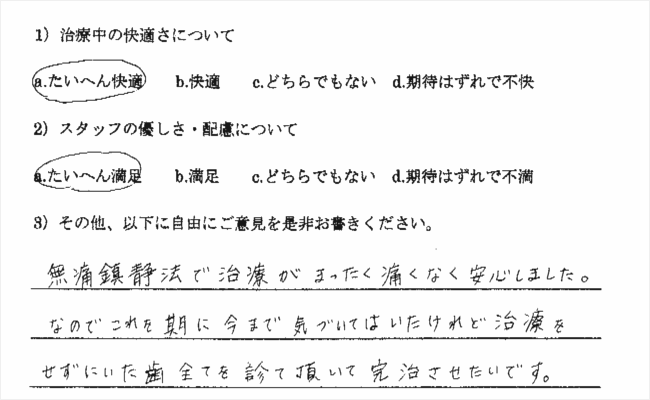 1) 治療中の快適さについて
a.たいへん快適 b.快適 c.どちらでもない d.期待はずれで不快
2) スタッフの優しさ・配慮について
a.たいへん満足 b.満足 c.どちらでもない d.期待はずれで不満
3) その他、以下に自由にご意見を是非お書きください。
無痛鎮静法で治療がまったく痛くなく安心しました。
なのでこれを期に今まで気づいてはいたけれど治療を
せずにいた歯全てを診て頂いて完治させたいです。